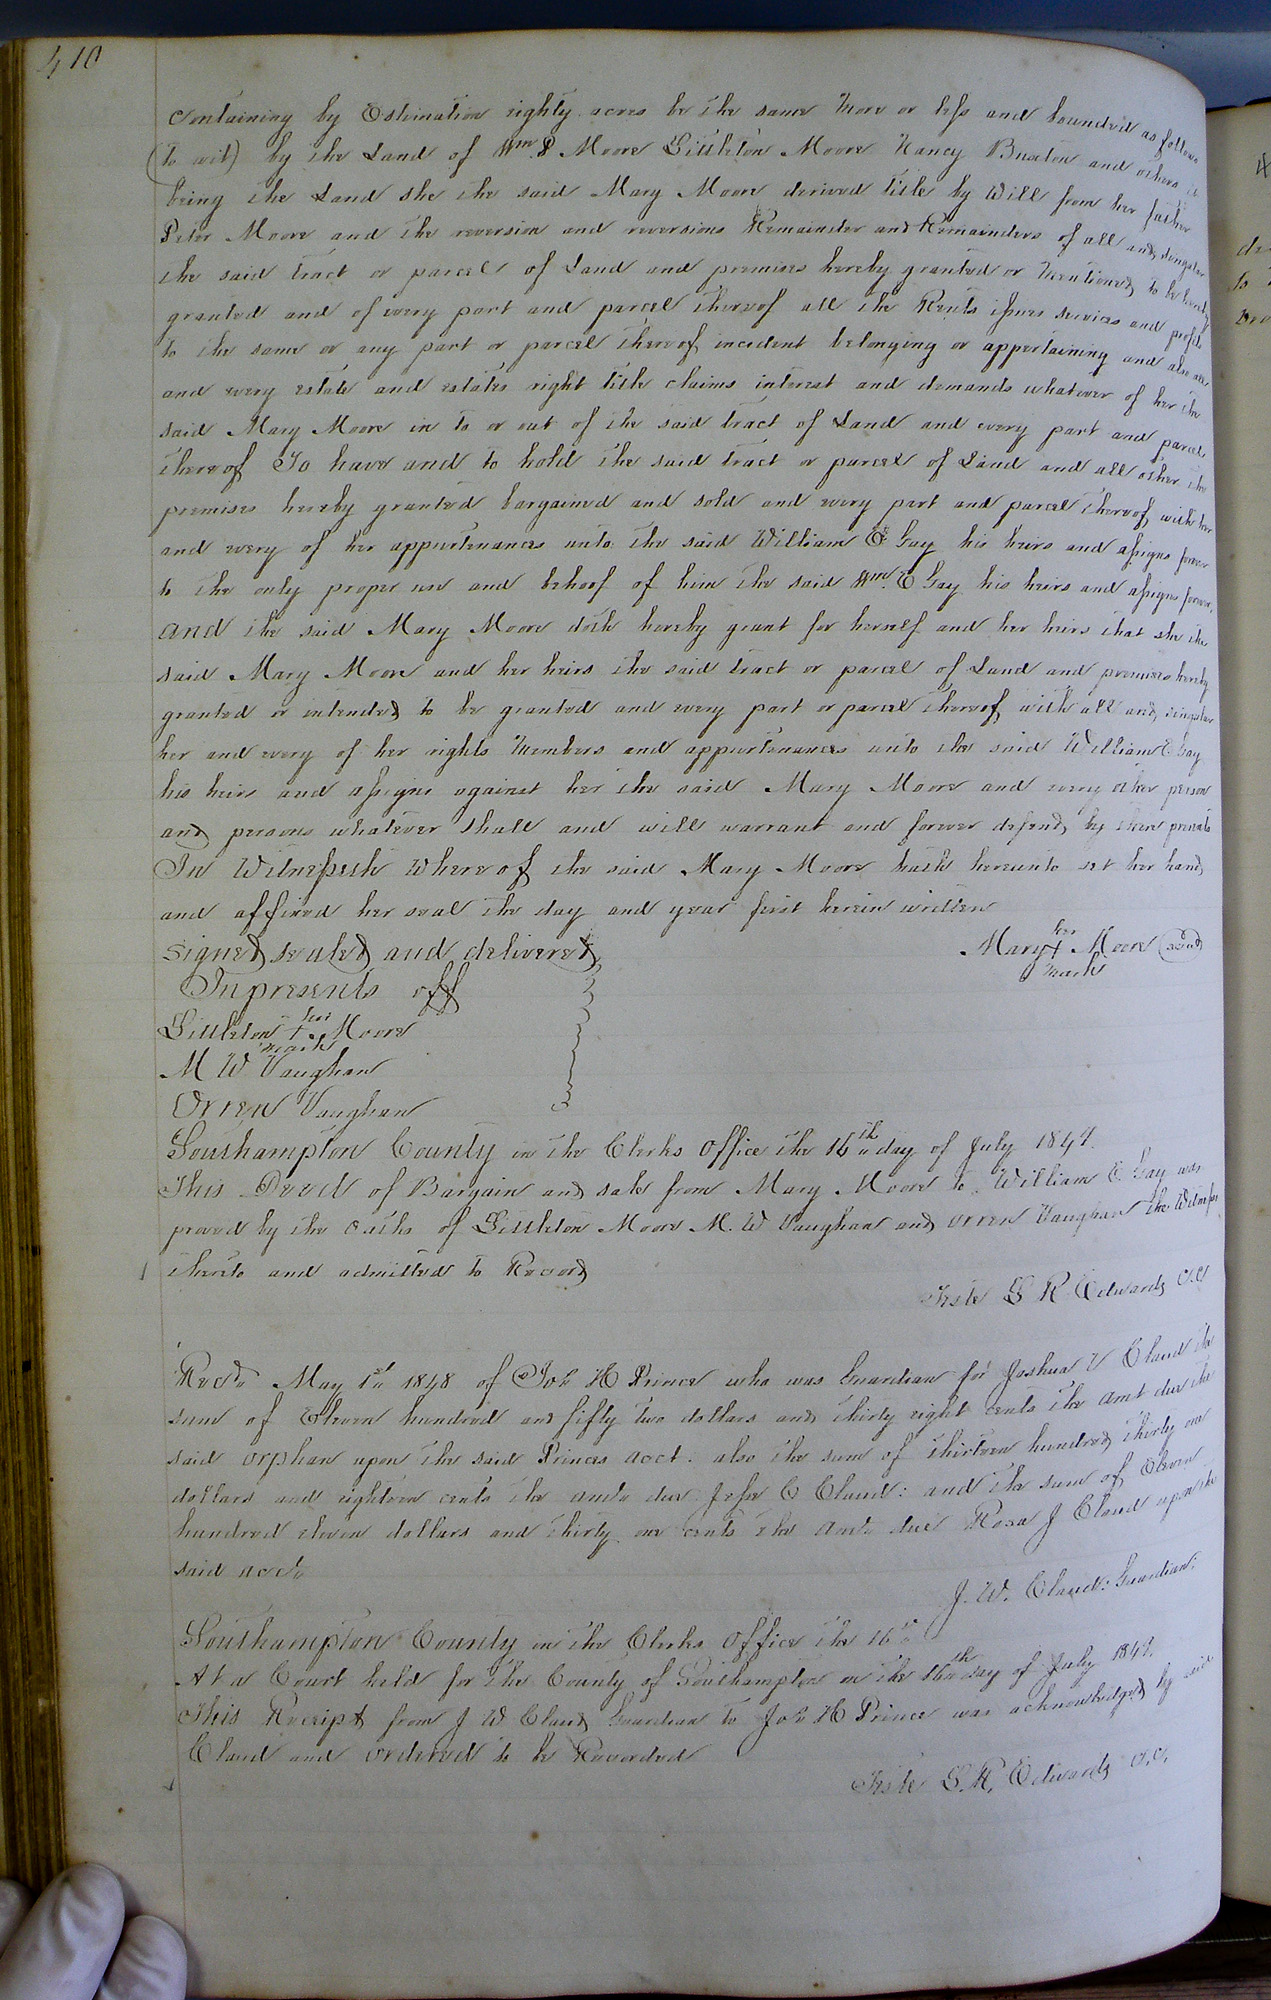 410
containing by Estimation eighty acres be the same more or less and bounded as follows
(to wit) by the Land of Wm P Moore Littleton Moore Nancy Buxton and others it
being the Land she the said Mary Moore derived title by Will from her father
Peter Moore and the reversion and reversions Remainder and Remainders of all and singular
the said tract or parcel of Land and premises hereby granted or mentioned to be hereby
granted and of every part and parcel thereof all the Rents issues services and profits
to the same or any part or parcel thereof incident belonging or appertaining and also all
and every estate and estates right title claims interest and demands whatever of her the
said Mary Moore in to or out of the said tract of Land and every part and parcel
thereof To have and to hold the said tract or parcel of Land and all other the
premises hereby granted bargained and sold and every part and parcel thereof with her
and every of her appurtenances unto the said William E Gay his heirs and assigns forever
to the only proper use and behoof of him the said Wm. E Gay his heirs and assigns forever,
and the said Mary Moore doth hereby grant for herself and her heirs that she the
said Mary Moore and her heirs the said tract or parcel of Land and premises hereby
granted or intended to be granted and every part or parcel thereof with all and singular
her and every of her rights members and appurtenances unto the said William E Gay
his heirs and assigns against her the said Mary Moore and every other person
and persons whatever shall and will warrant and forever defend by these presents
In Witnesseth Whereof the said Mary Moore hath hereunto set her hand
and affixed her seal the day and year first herein written
signed sealed and delivered
Mary her + mark Moore (seal)
In presents off
Littleton his + mark Moore
M W Vaughan
Orren Vaughan
Southampton County in the Clerks Office the 16th day of July 1849.
This Deed of Bargain and sale from Mary Moore to William E Gay was
proved by the oaths of Littleton Moore M. W Vaughan and Orren Vaughan the Witnesses
thereto and admitted to Record
Teste L R Edwards c.c
Recd May 1st 1848 of Jos H Prince who was Guardian for Joshua V Claud the
sum of Eleven hundred and fifty two dollars and thirty eight cents the amt due the
said orphan upon the said Princes acct. also the sum of thirteen hundred thirty one
dollars and eighteen cents the amt due Jesse C Claud: and the sum of Eleven
hundred eleven dollars and thirty one cents the amt due Rosa J Claud upon the
said acct
J. W. Claud: Guardian:
Southampton County in the Clerks Office the 16th
At a Court held for the County of Southampton on the 16th day of July 1849.
This Receipt from J W Claud Guardian to Jos H Prince was acknowledged by said
Claud and ordered to be Recorded
Teste L. R. Edwards c.c.